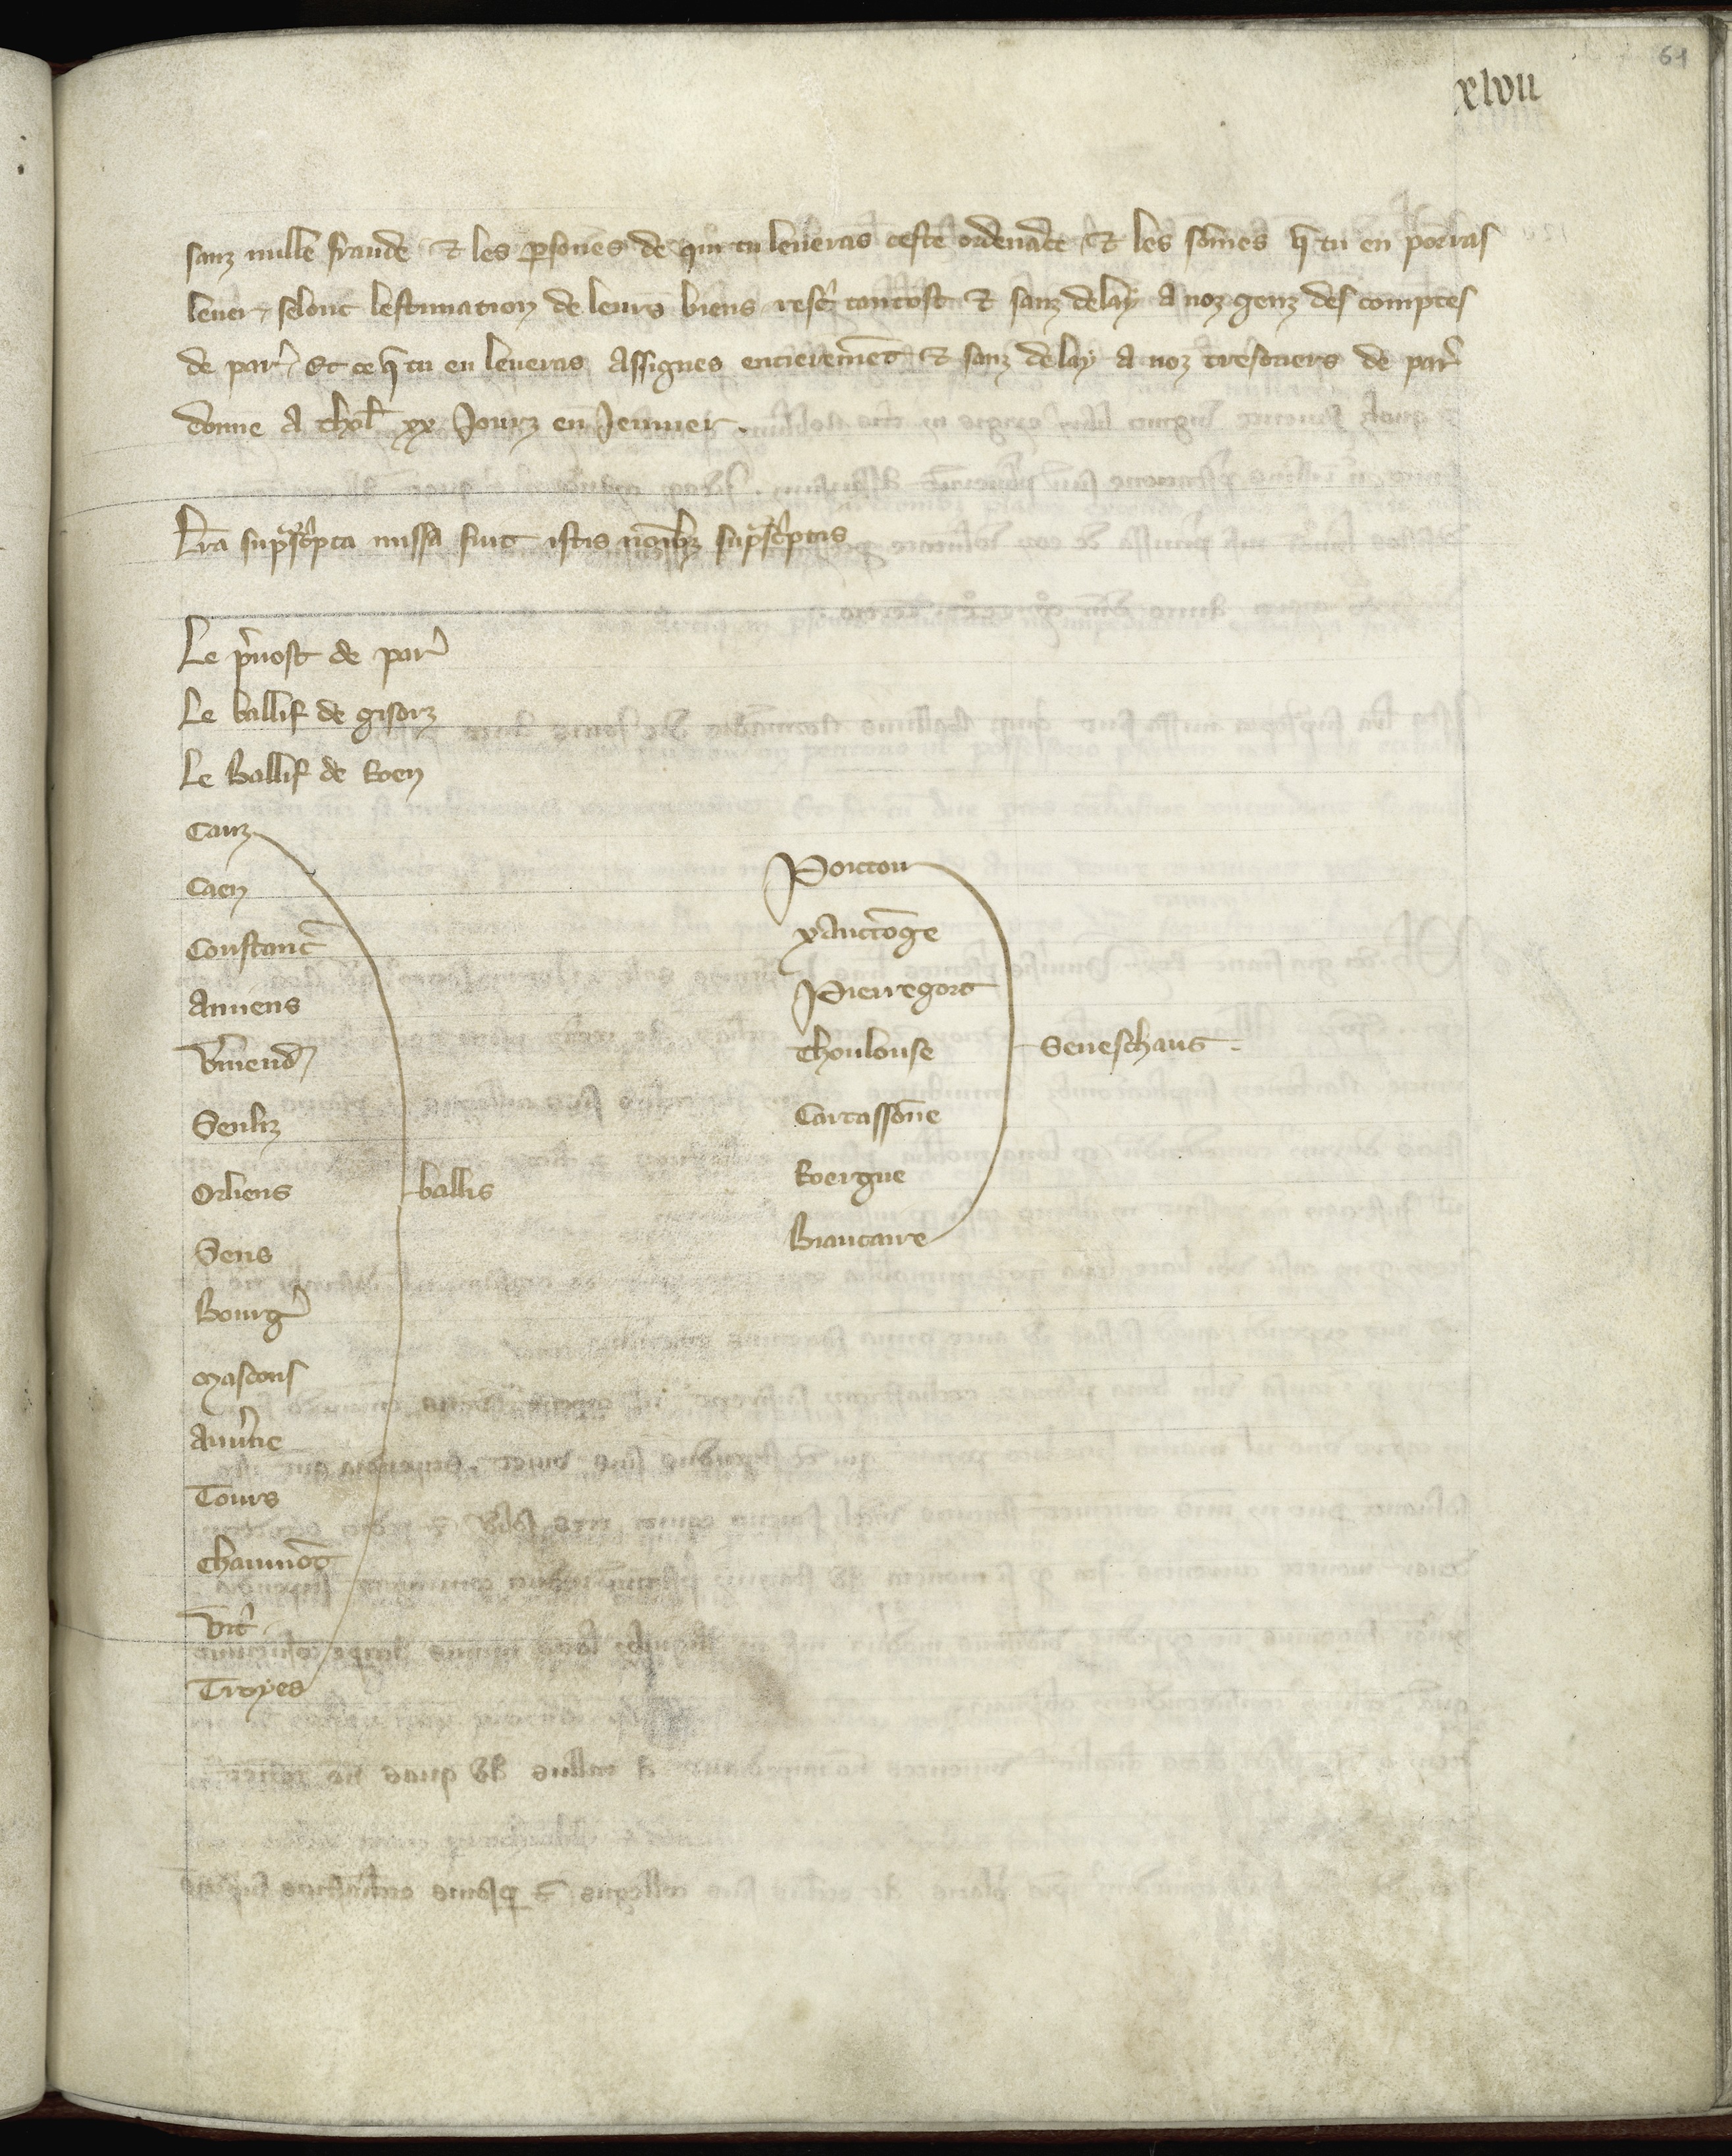 61
xlvii
sanz nulle fraude et les ꝑsoñes de qui tu leueras ceste ordenãce et les sõmes q̃ tu en porras
leuer selonc lestimation de leurs biens resc̛ tantost et sanz delay a noz genz des comptes
de par̛ Et ce q̃ tu en leueras assignes entierem̃et et sanz delay a noz tresoriers de par̛
donne a thol̃ xx Jourz en Jenuier.
Lr̃a suprasc̛pta missa fuit istis noĩbꝫ suprasc̛ptis
Le p̛uost de par̛
Le ballif de gisorz
Le Ballif de Roen
Caux
Caen
Constanc̛
Amiens
Ṽmend̛
Senliz
Orliens
ballis
Sens
Bourg̛
Mascons
Auưne
Tours
Chaumõt
Vit̛
Troyes
Poictou
Xanctõge
Pierregort
Thoulouse
Seneschaus.
Carcassõne
Roergue
Biaucaire